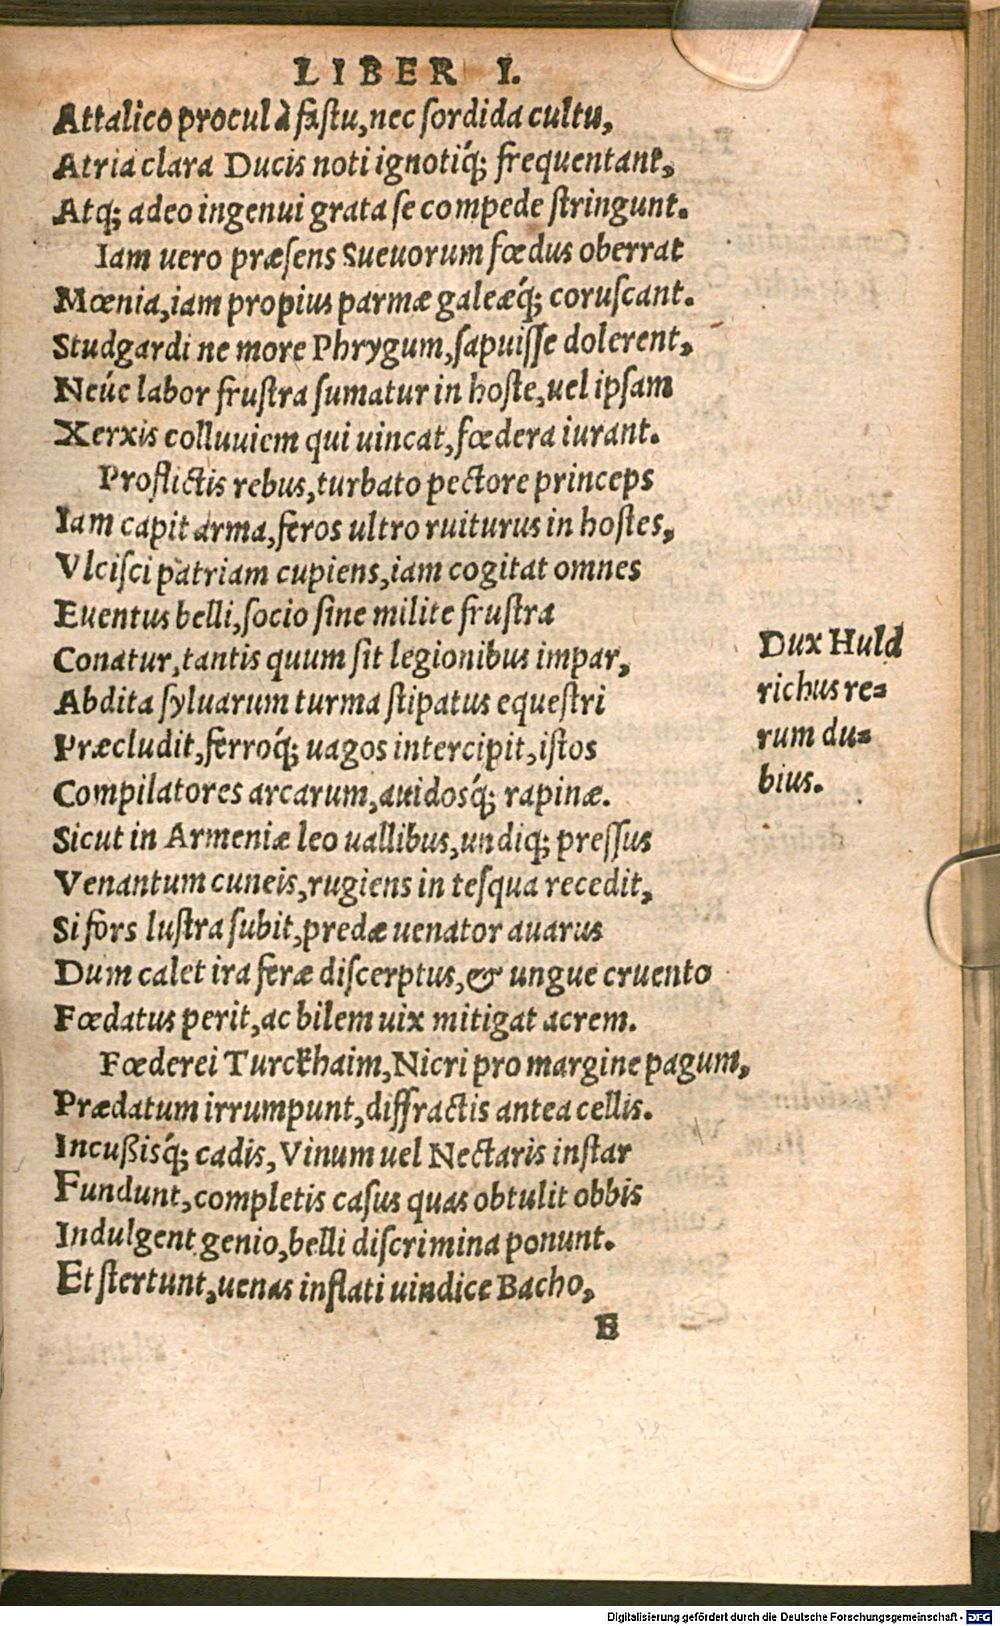 LIBER I.
Attalico procul à fastu, nec sordida cultu,
Atria clara Ducis noti ignotiq́; frequentant,
Atq; adeo ingenui grata se compede stringunt.
Iam uero præsens Sueuorum fœdus oberrat
Mœnia, iam propius parmæ galeæq́; coruscant.
Studgardi ne more Phrygum, sapuisse dolerent,
Neúe labor frustra sumatur in hoste, uel ipsam
Xerxis colluuiem qui uincat, fœdera iurant.
Proflictis rebus, turbato pectore princeps
Iam capit arma, feros ultro ruiturus in hostes,
Vlcisci patriam cupiens, iam cogitat omnes
Euentus belli, socio sine milite frustra
Conatur, tantis quum sit legionibus impar,
Abdita syluarum turma stipatus equestri
Præcludit, ferroq́; uagos intercipit, istos
Compilatores arcarum, auidosq́; rapinæ.
Sicut in Armeniæ leo uallibus, undiq; pressus
Venantum cuneis, rugiens in tesqua recedit,
Si fors lustra subit, predæ uenator auarus
Dum calet ira feræ discerptus, & ungue cruento
Fœdatus perit, ac bilem uix mitigat acrem.
Fœderei Turckhaim, Nicri pro margine pagum,
Prædatum irrumpunt, diffractis antea cellis.
Incußisq́; cadis, Vinum uel Nectaris instar
Fundunt, completis casus quas obtulit obbis
Indulgent genio, belli discrimina ponunt.
Et stertunt, uenas inflati uindice Bacho,
E
Dux Huld
richus re-
rum du-
bius.
Digitalisierung gefördert durch die Deutsche Forschungsgemeinschaft - DFG